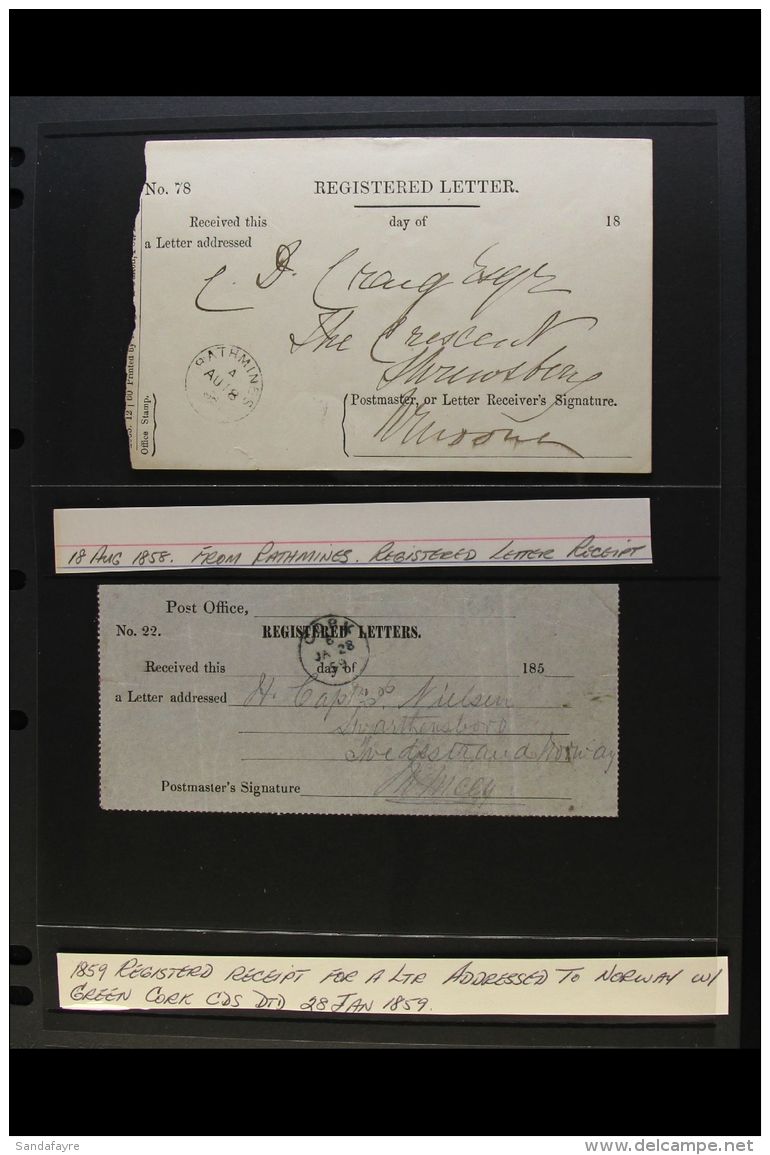 No. 78 REGISTERED LETTER.
Received this day of 18
a Letter addressed
C. D. Craig Esqr
The Crescent
Shrewsbury
RATHMINES
A
AU 18
Postmaster, or Letter Receiver's Signature.
Office Stamp.
12 | 60 Printed by
18 AUG 1858. FROM RATHMINES. REGISTERED LETTER RECEIPT
Post Office,
No. 22. REGISTERED LETTERS.
CORK
JA 28
59
Received this day of 185
a Letter addressed H. Capt Nielsen
Norway
Postmaster's Signature
1859 REGISTERD RECEIPT FOR A LTR ADDRESSED TO NORWAY W/
GREEN CORK CDS DTD 28 JAN 1859.
Sandafayre
www.delcampe.net